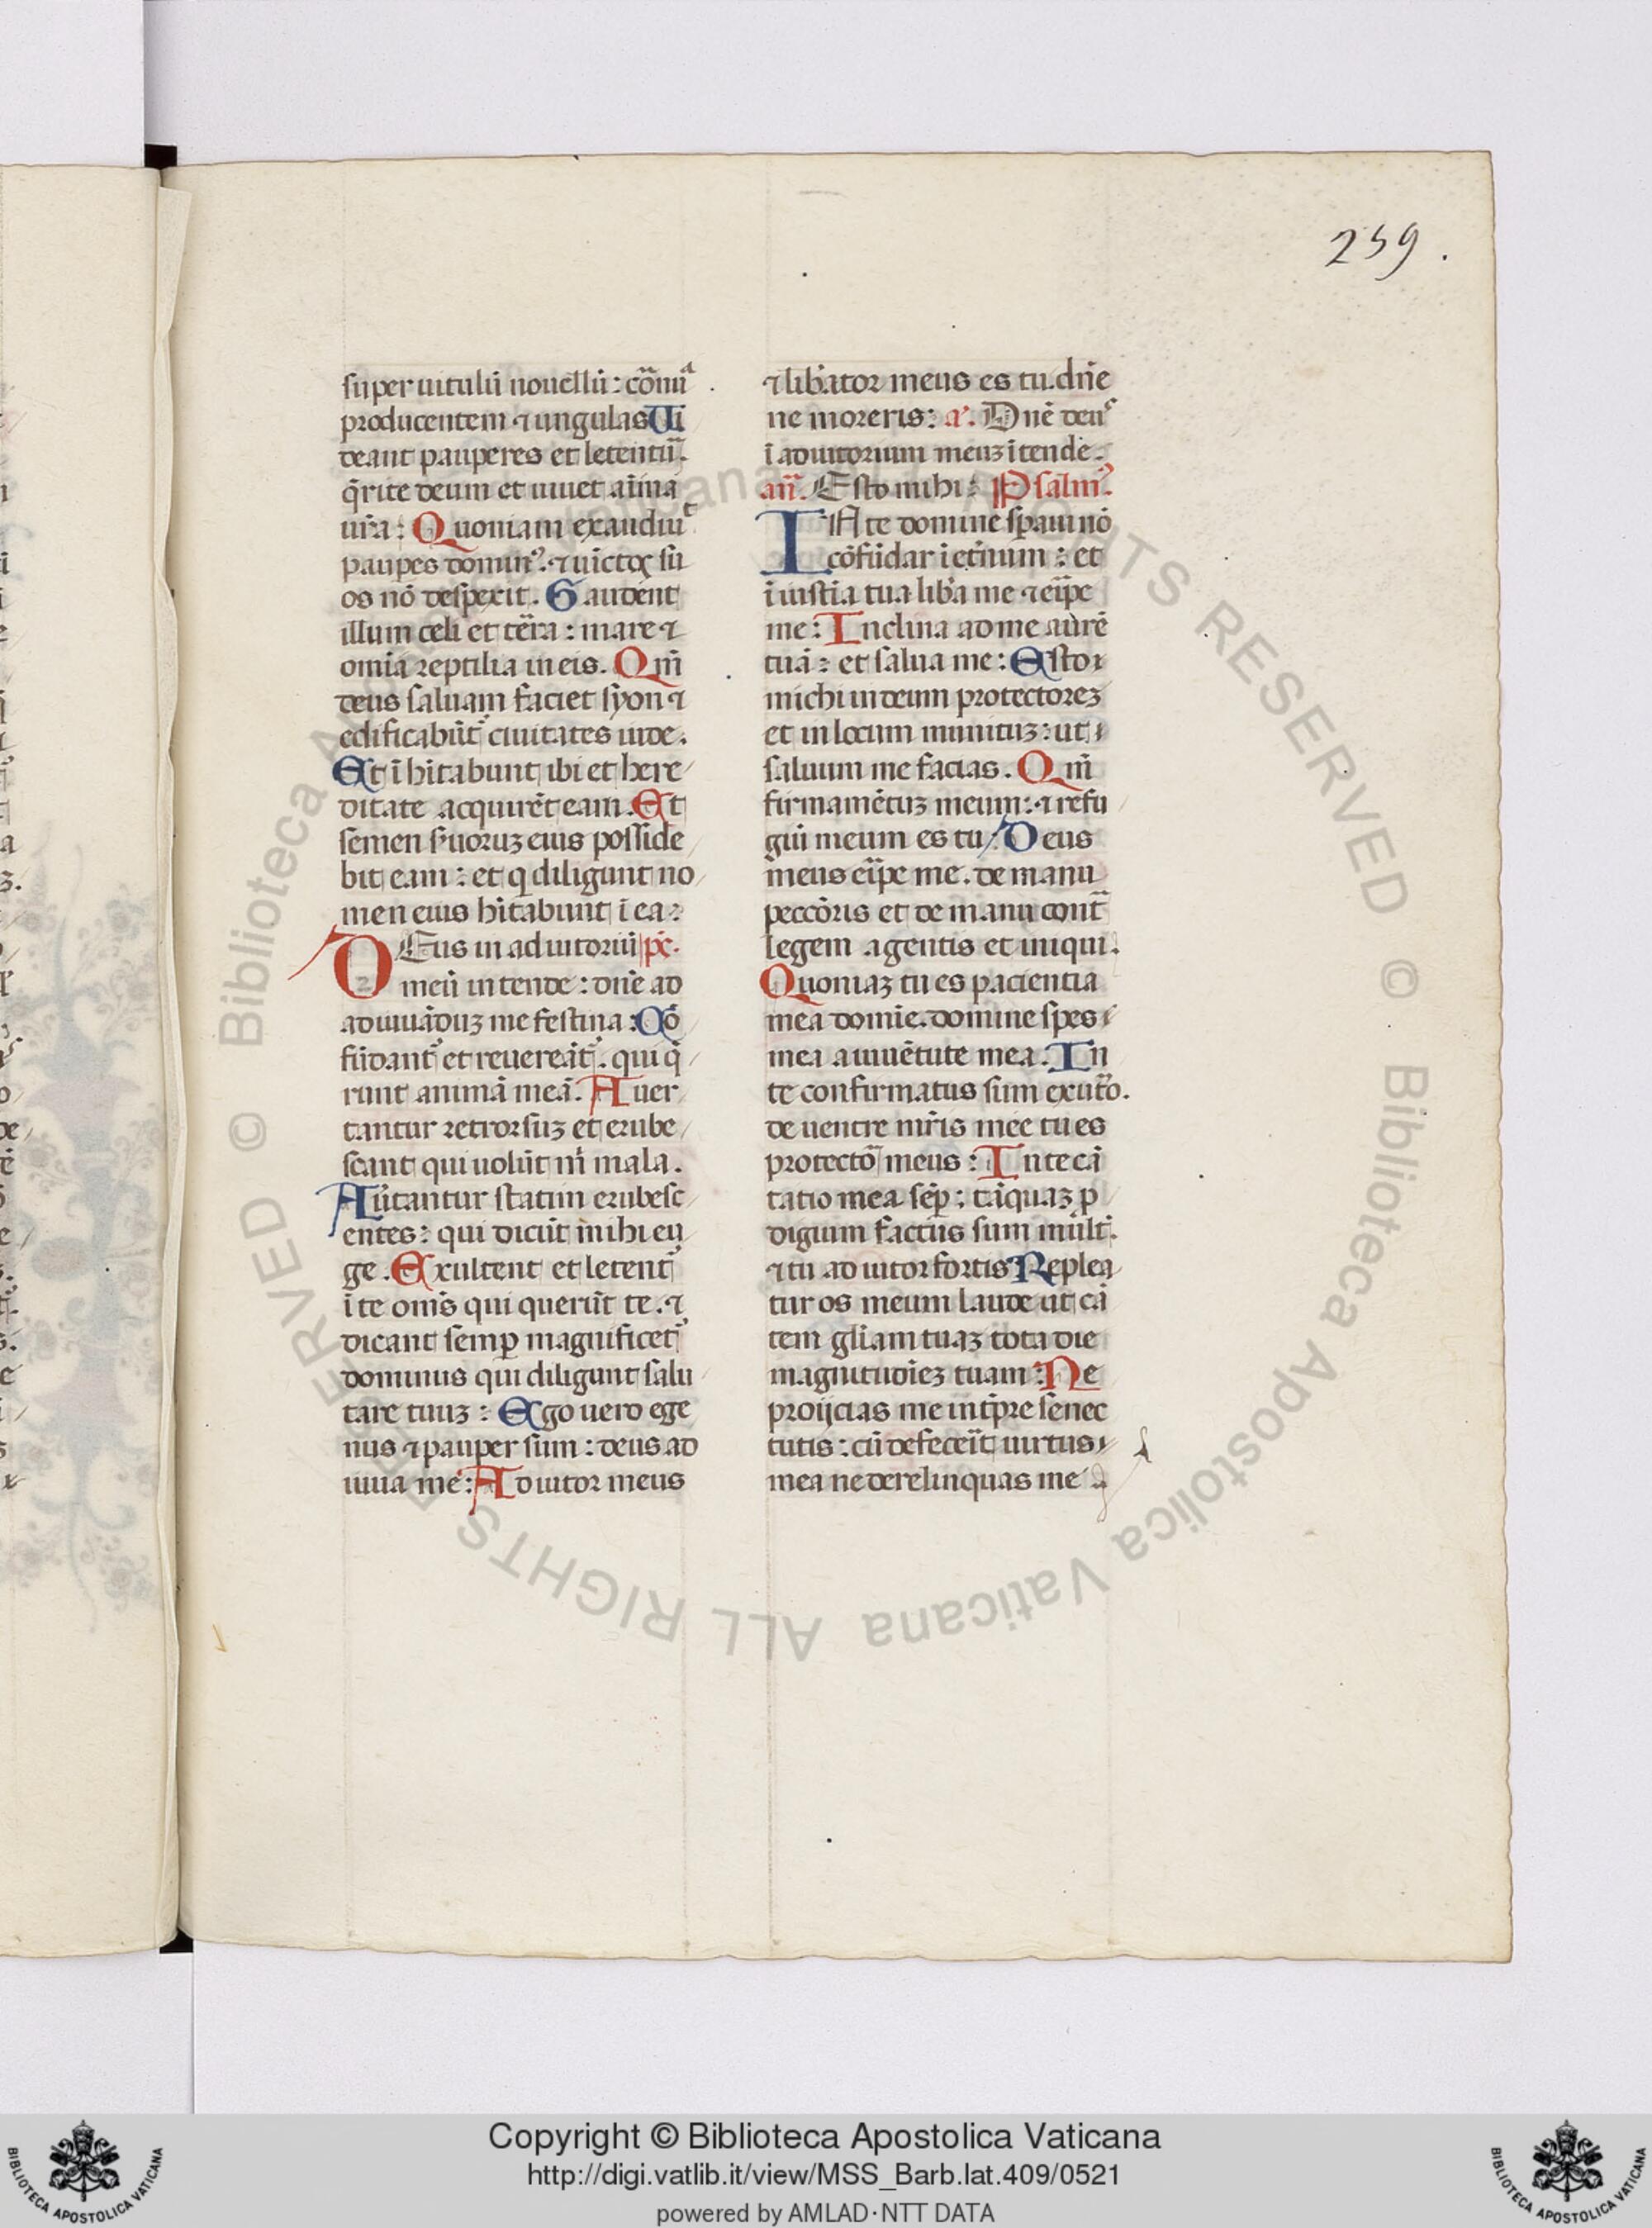 259.
super uitulū nouellū: cōnua
producentem ⁊ ungulas Ui
deant pauperes et letentur̄.
q̄rite deum et uiuet aīma
ur̄a: Quoniam exaudiuit
paupes dominꝰ: ⁊ uīctoꝝ su
os nō despexit. Gaudent
illum celi et terr̄a: mare ⁊
omīa reptilia in eis. Qm̄
deus saluam faciet syon ⁊
edificabūt᷑ ciuitates iude.
Et īhītabunt ibi et here
ditate acquirēt eam. Et
semen s̄uoruꝫ eius posside
bit eam: et q̄ diligunt no
men eius hītabunt ī ea:
DEus in adiutoriū p̄s.
meū intende: dn̄e ad
adiuuāduꝫ me festina: Cō
fūdant᷑ et reuereāt᷑. qui q̄
runt animā meā. Auer
tantur retrorsuꝫ et erube
scant qui uolūt m̄ mala.
Au̾tantur statim erubesc
entes: qui dicūt mihi eu
ge. Exultent et letent᷑
ī te om̄s qui querūt te. ⁊
dicant semꝑ magnificet᷑
dominus qui diligunt salu
tare tuuꝫ: Ego uero ege
nus ⁊ pauper sum: deus ad
iuua me: Adiutor meus
⁊ lib̾ator meus es tu. dn̄e
ne moreris: a. Dn̄e deuˢ
ī adiutorium meuꝫ ītende.
añ. Esto mihi: Psalmꝰ.
IN te domine sꝑaui nō
cōfūdar ī et̾num: et
ī iustīa tua lib̾a me ⁊ eīpe
me: Inclina ad me aurē
tuā: et salua me: Esto
michi in deum protectoreꝫ
et in locum munituꝫ: ut
saluum me facias. Qm̄
firmamētuꝫ meum: ⁊ refu
giū meum es tu: Deus
meus eīpe me. de manu
peccōris et de manu cont̄
legem agentis et iniqui.
Quoniaꝫ tu es pacientia
mea domīe. domine spes
mea a iuuētute mea. In
te confirmatus sum ex ut̾o.
de uentre mr̄is mee tu es
protectō meus: In te cā
tatio mea sēꝑ: tāquaꝫ p
digium factus sum mult᷑.
⁊ tu adiutor fortis Replea
tur os meum laude ut cā
tem gl̄iam tuaꝫ tota die
magnitudīeꝫ tuam: Ne
proiicias me in tp̄re senec
tutis: cū defecerīt uirtus
mea ne derelinquas me
Copyright © Biblioteca Apostolica Vaticana
http://digi.vatlib.it/view/MSS_Barb.lat.409/0521
powered by AMLAD·NTT DATA